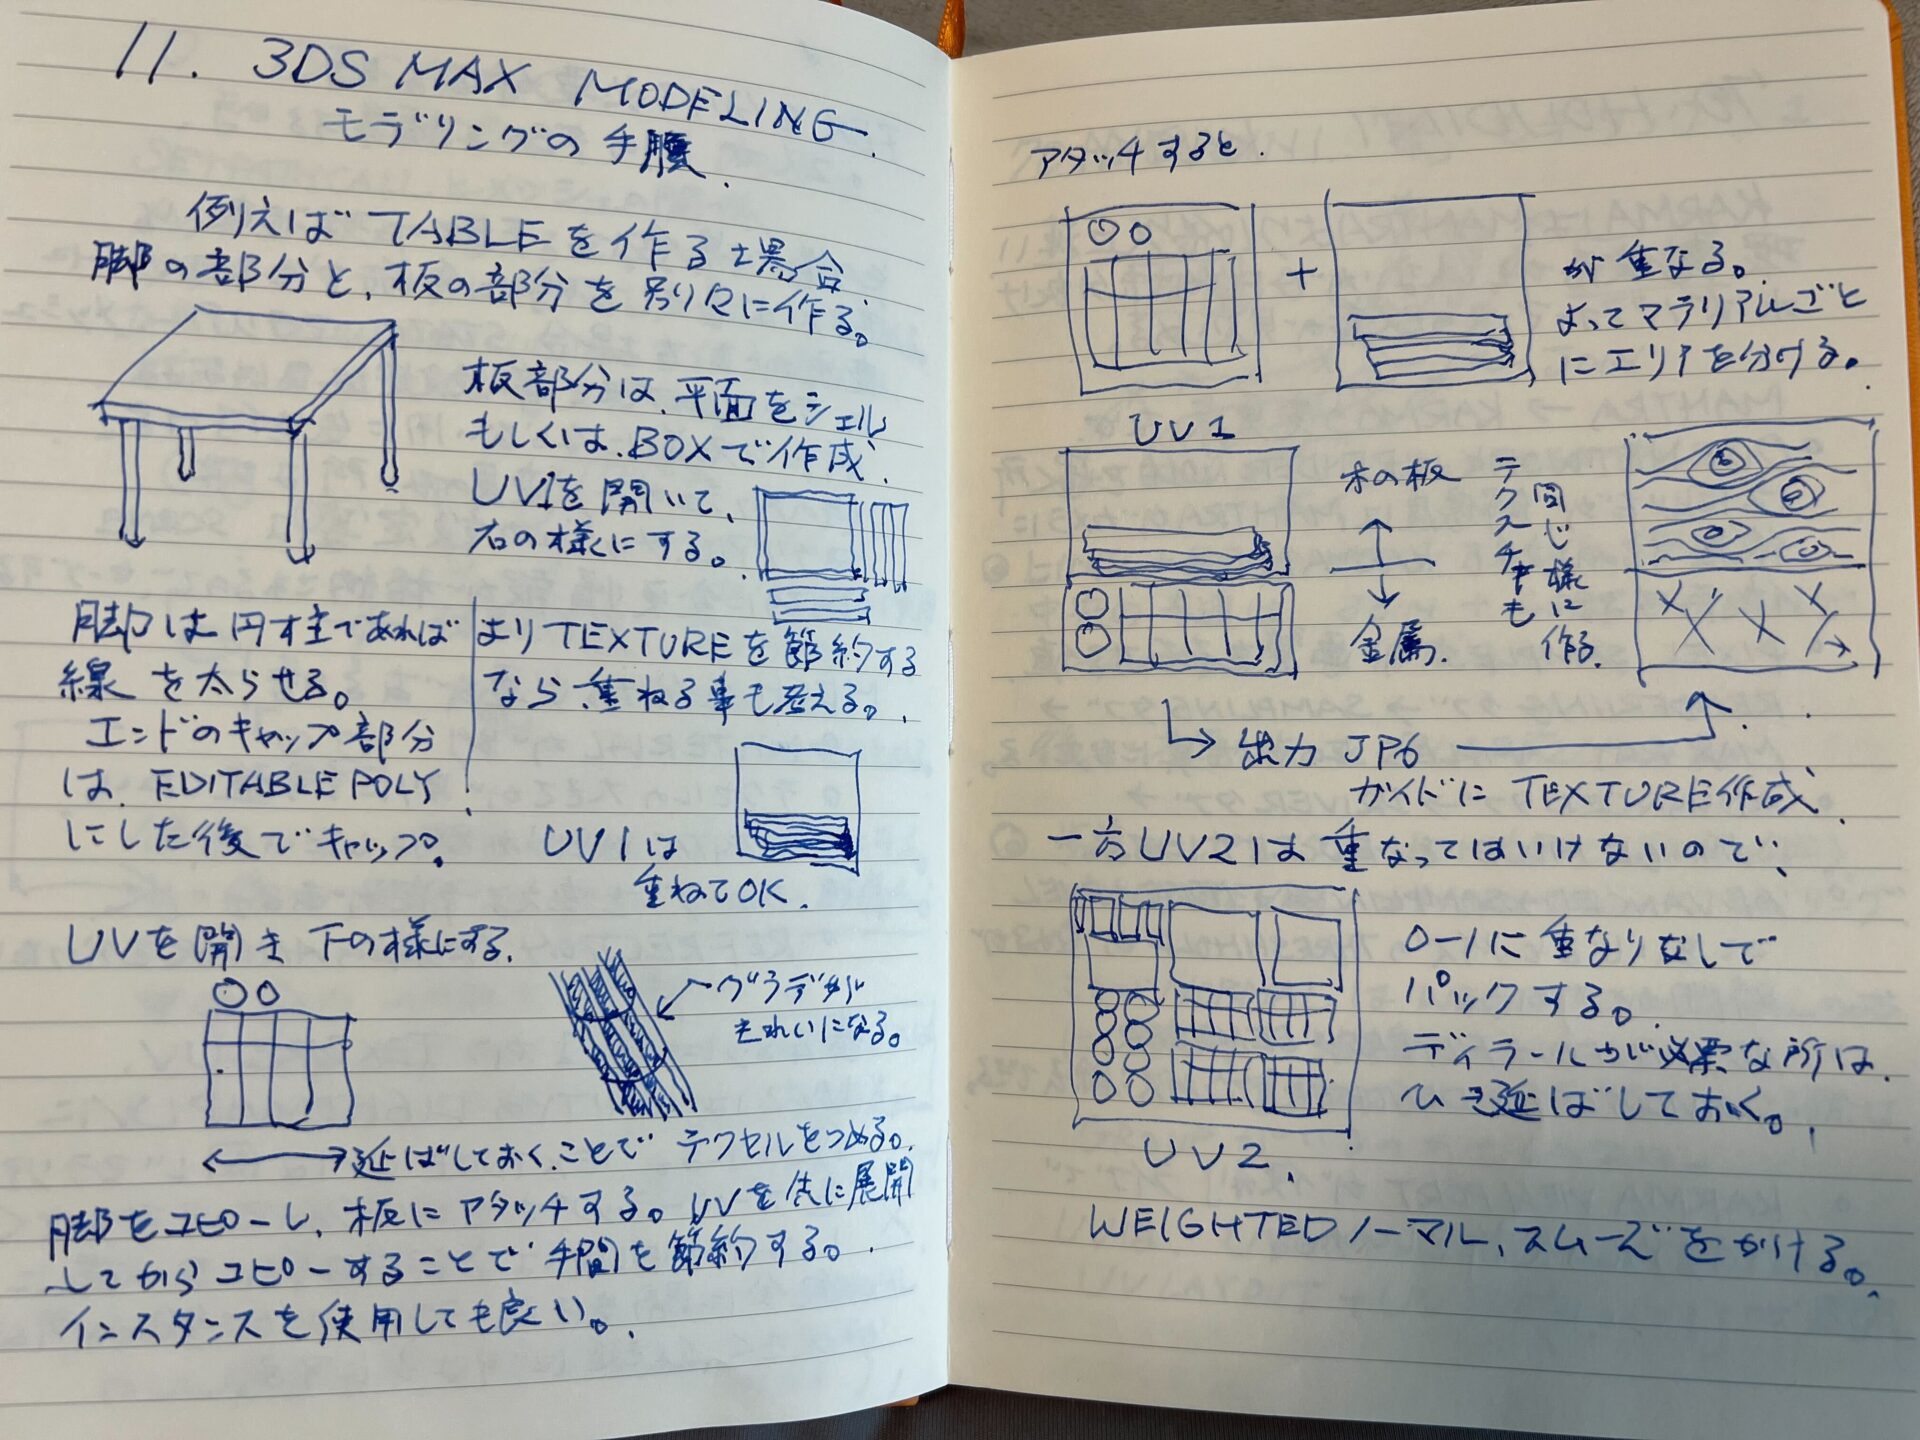 11. 3DS MAX MODELING.
モデリングの手腰.
例えば TABLE を作る場合、
脚の部分と、板の部分を別々に作る。
板部分は、平面をシェル
もしくは、BOXで作成、
UV1を開いて、
右の様にする。
脚は円柱であれば
線を太らせる。
エンドのキャップ部分
は、EDITABLE POLY
にした後でキャップ。
より TEXTURE を節約する
なら、重ねる事も考える。
UV1は
重ねてOK.
UVを開き下の様にする.
グラデが
きれいになる。
延ばしておくことでテクセルをつめる。
脚をコピーし、板にアタッチする。UVを先に展開
してからコピーすることで手間を節約する。
インスタンスを使用しても良い。
アタッチすると.
+
が重なる。
よってマテリアルごと
にエリアを分ける。
UV1
木の板
金属.
テクスチャも
同じ様に
作る.
出力 JPG
ガイドに TEXTURE作成.
一方UV2は重なってはいけないので、
0-1に重なりなしで
パックする。
ディテールが必要な所は、
ひき延ばしておく。
UV2.
WEIGHTEDノーマル、スムーズをかける。